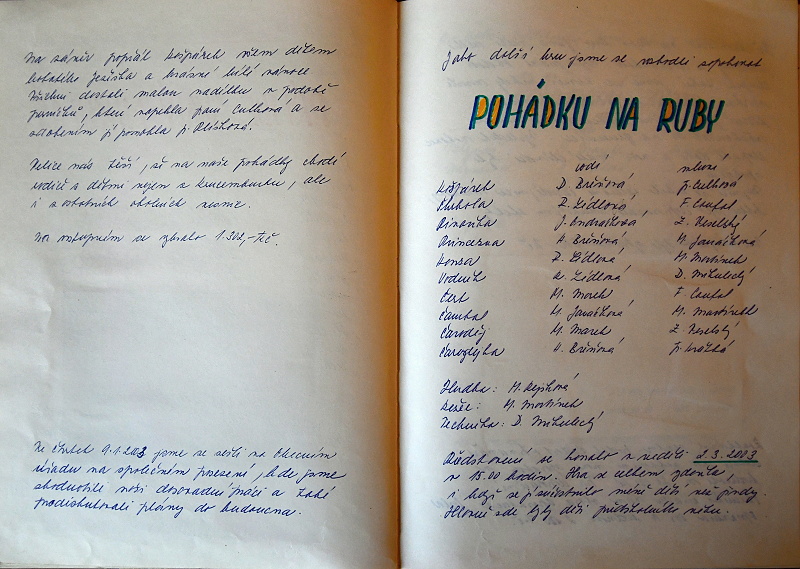 Na závěr popřál Kašpárek všem dětem
bohatého Ježíška a krásné bílé vánoce
Všichni dostali malou nadílku v podobě
perníčků, které napekla paní Culková a se
zdobením jí pomohla p.
Velice nás těší, že na naše pohádky chodí
rodiče s dětmi nejen z Krucemburku, ale
i z ostatních okolních vesnic.
Na vstupném se vybralo 1.302,- Kč.
Ve čtvrtek 9.1.2003 jsme se sešli na Obecním
úřadu na společném posezení, kde jsme
zhodnotili naši dosavadní práci a také
prodiskutovali plány do budoucna.
Jako další hru jsme se rozhodli
POHÁDKU NA RUBY
vodí mluví
Kašpárek D. Brešňová J. Culková
Škrhola Z. Zídlová F. Coufal
J. Ondráčková Z. Veselský
Princezna H. Brešňová M. Janáčková
Honza Z. Zídlová M. Martínek
Vodník Z. Zídlová D. Mikulecký
Čert M. Marek F. Coufal
M. Janáčková M. Martínek
Čaroděj M. Marek Z. Veselský
Čarodějka H. Brešňová
Hudba: M.
Režie: M. Martínek
Technika: D. Mikulecký
Představení se konalo v neděli 2.3.2003
v 15.00 hodin. Hra se celkem zdařila
i když se zúčastnilo méně dětí než jindy.
Hlavně zde byly děti předškolního věku.